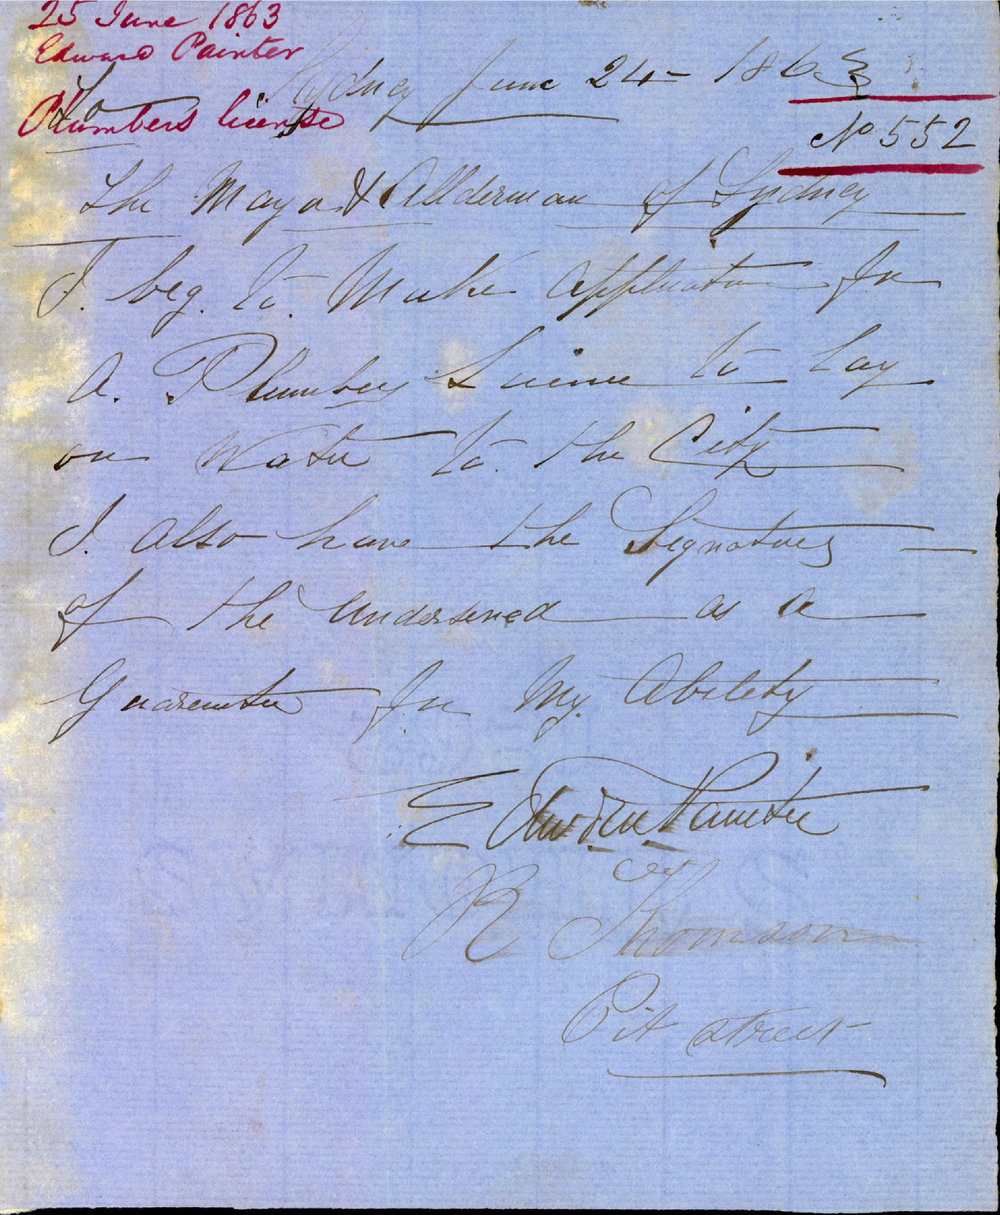 25 June 1863
Edward Painter
Plumbers license
To Sydney June 24 - 1863
No 552
The Mayor & Allderman of Sydney
I. beg. to. Make Application For
A. Plumbers License to Lay
on Water to. the City
I. Also have the Signatures
of the undersened as a
Guarentee For My. Abilety
Edward Painter
R Thomson
Pit street